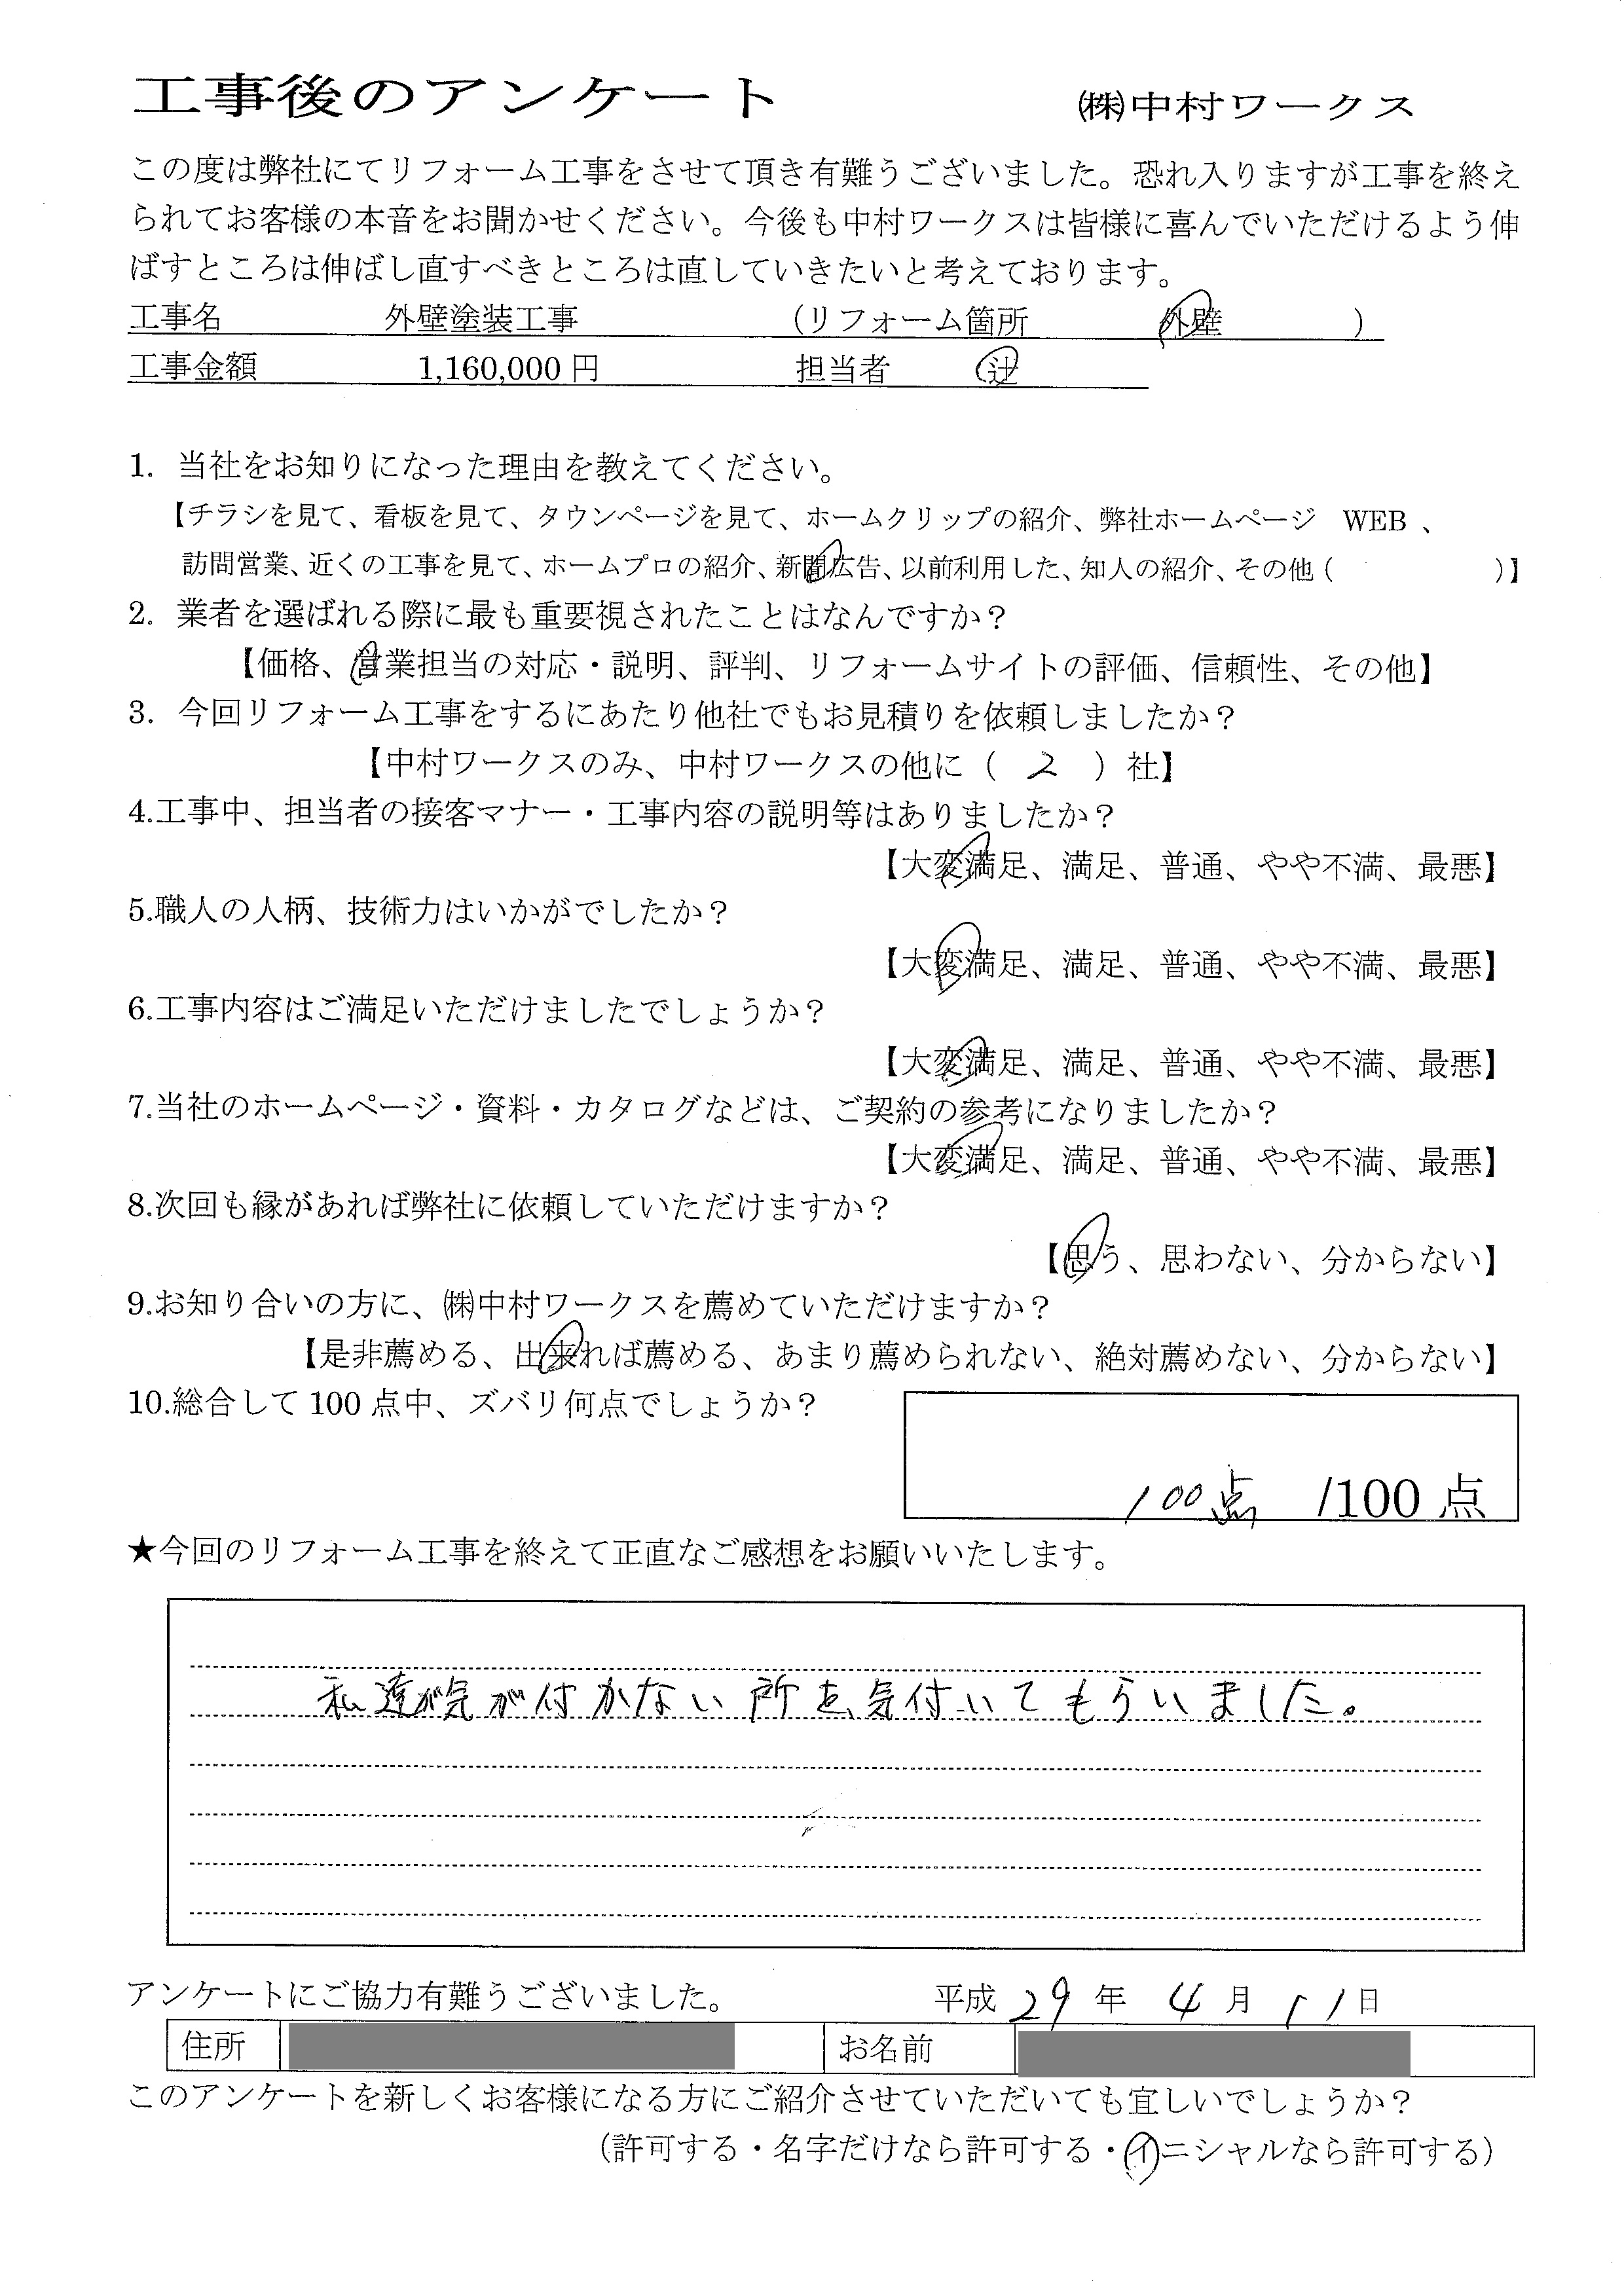 工事後のアンケート ㈱中村ワークス
この度は弊社にてリフォーム工事をさせて頂き有難うございました。恐れ入りますが工事を終え
られてお客様の本音をお聞かせください。今後も中村ワークスは皆様に喜んでいただけるよう伸
ばすところは伸ばし直すべきところは直していきたいと考えております。
工事名 外壁塗装工事 （リフォーム箇所 外壁 ）
工事金額 1,160,000 円 担当者 辻
1. 当社をお知りになった理由を教えてください。
【チラシを見て、看板を見て、タウンページを見て、ホームクリップの紹介、弊社ホームページ WEB 、
訪問営業、近くの工事を見て、ホームプロの紹介、新聞広告、以前利用した、知人の紹介、その他（ ）】
2. 業者を選ばれる際に最も重要視されたことはなんですか？
【価格、営業担当の対応・説明、評判、リフォームサイトの評価、信頼性、その他】
3. 今回リフォーム工事をするにあたり他社でもお見積りを依頼しましたか？
【中村ワークスのみ、中村ワークスの他に（ 2 ）社】
4.工事中、担当者の接客マナー・工事内容の説明等はありましたか？
【大変満足、満足、普通、やや不満、最悪】
5.職人の人柄、技術力はいかがでしたか？
【大変満足、満足、普通、やや不満、最悪】
6.工事内容はご満足いただけましたでしょうか？
【大変満足、満足、普通、やや不満、最悪】
7.当社のホームページ・資料・カタログなどは、ご契約の参考になりましたか？
【大変満足、満足、普通、やや不満、最悪】
8.次回も縁があれば弊社に依頼していただけますか？
【思う、思わない、分からない】
9.お知り合いの方に、㈱中村ワークスを薦めていただけますか？
【是非薦める、出来れば薦める、あまり薦められない、絶対薦めない、分からない】
10.総合して 100 点中、ズバリ何点でしょうか？
100点 /100 点
★今回のリフォーム工事を終えて正直なご感想をお願いいたします。
私達が気が付かない所を気付いてもらいました。
アンケートにご協力有難うございました。 平成 29 年 4 月 11 日
住所 お名前
このアンケートを新しくお客様になる方にご紹介させていただいても宜しいでしょうか？
（許可する・名字だけなら許可する・イニシャルなら許可する）